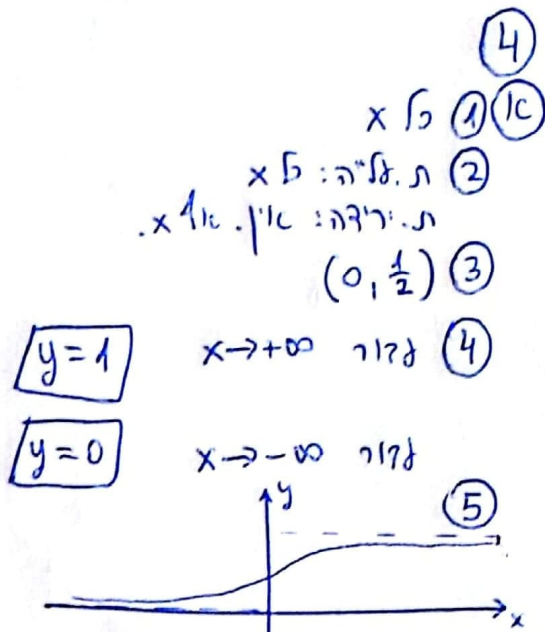 4
א 1 כל x
2 ת. עליה: כל x
ת. ירידה: אין. אף x.
3 (0, ½)
4 עבור x→+∞ y=1
עבור x→-∞ y=0
5
y
x